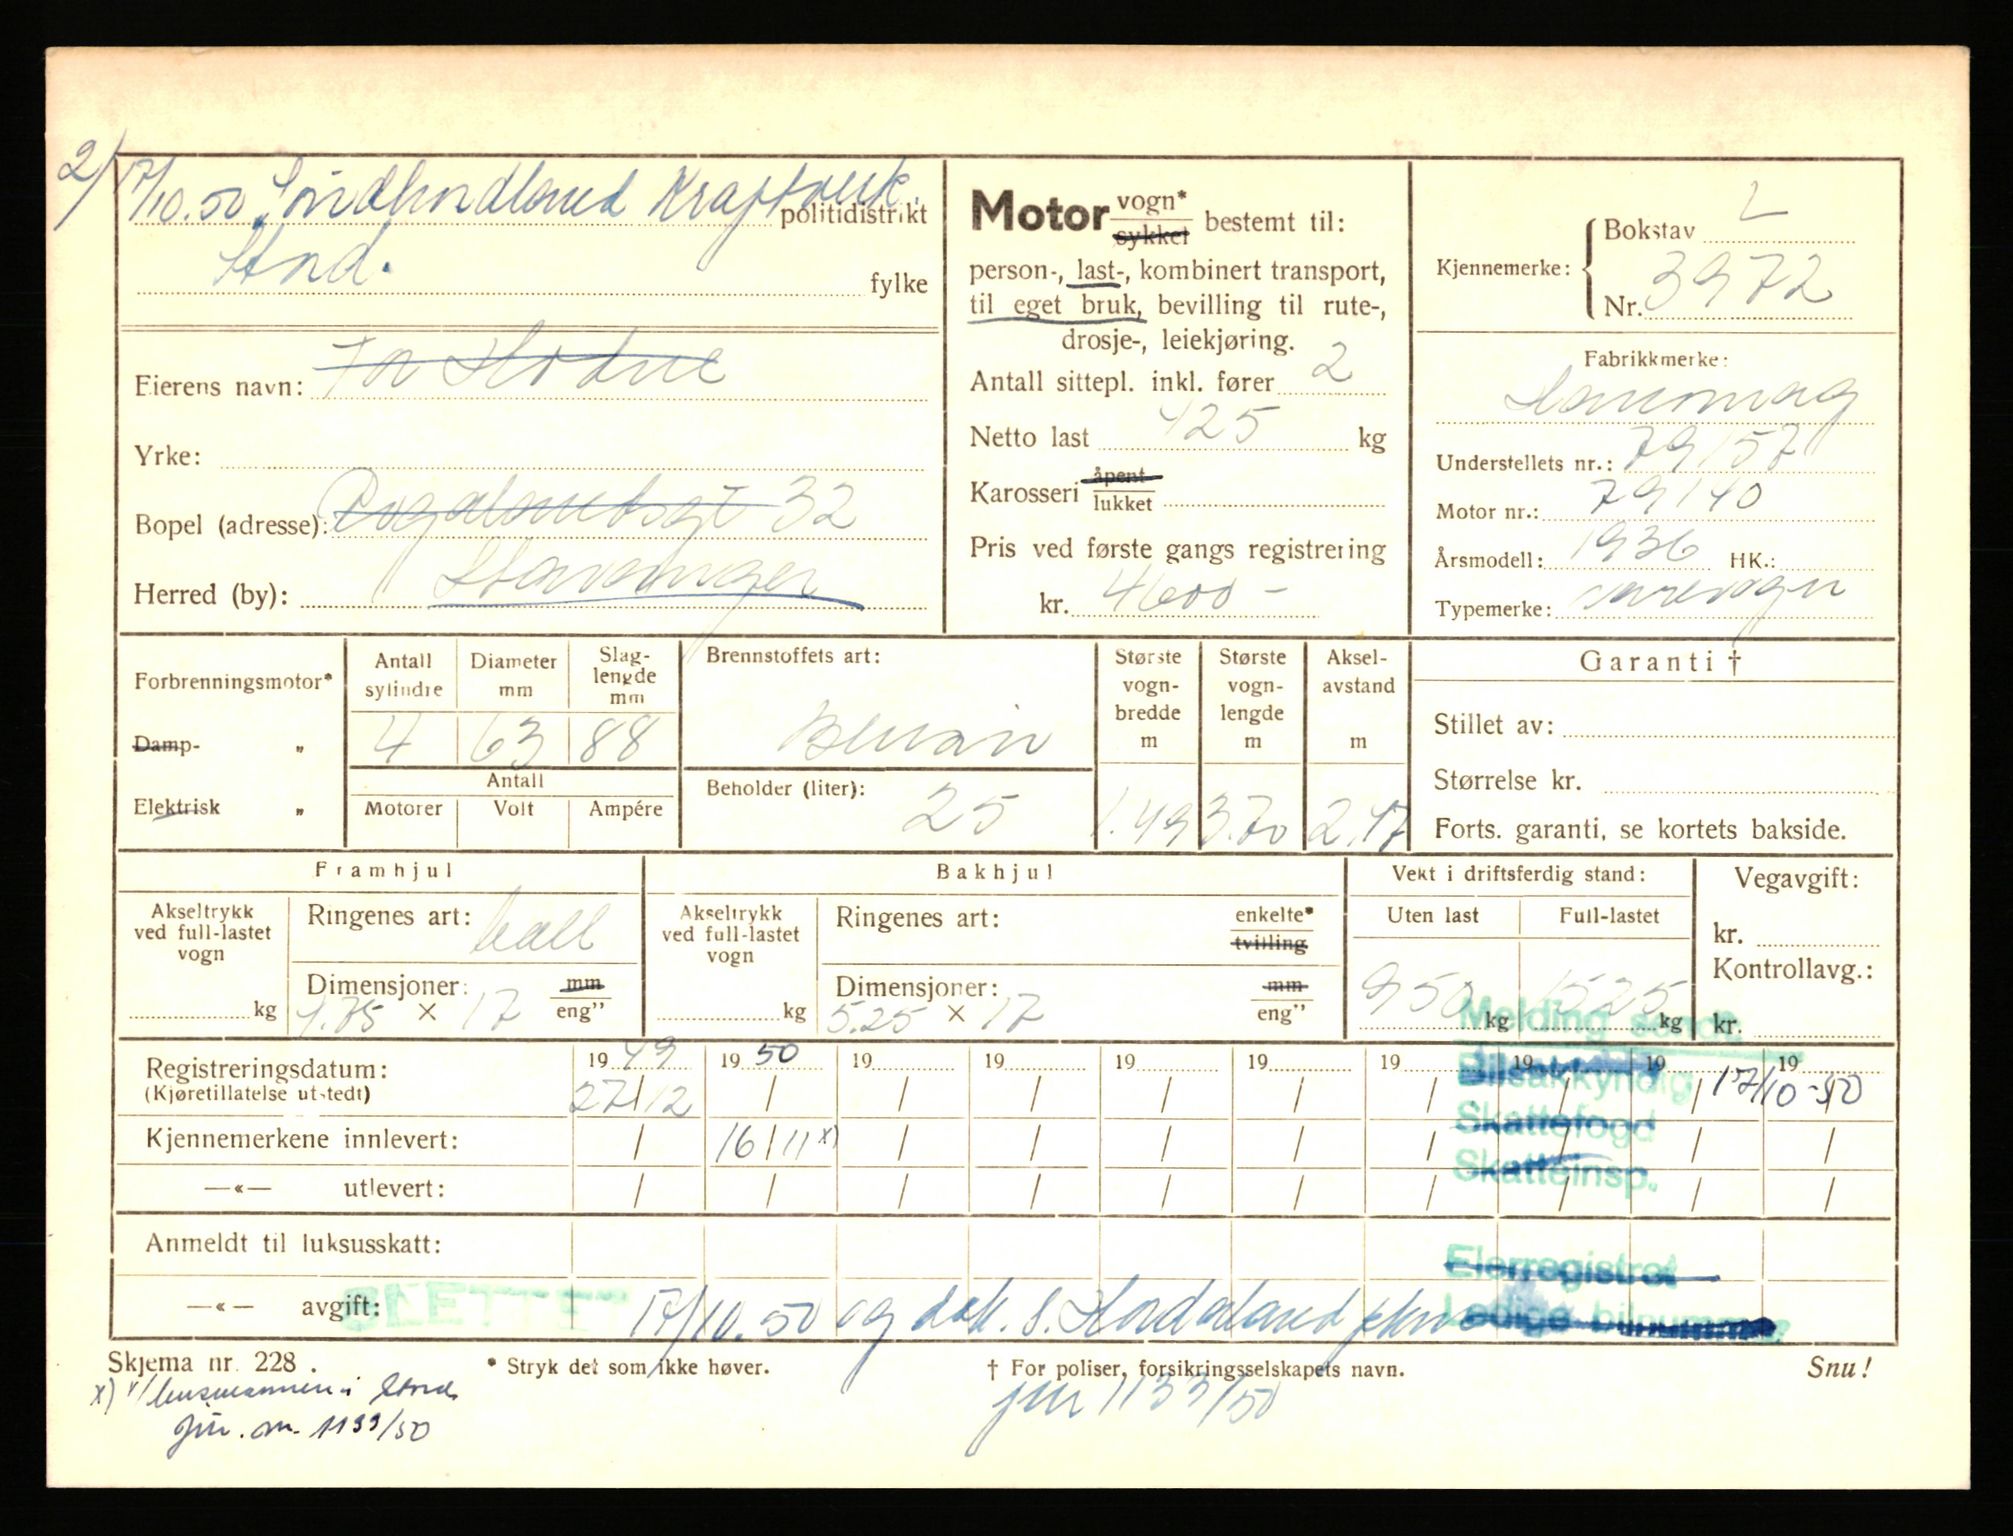 2/ 17/10.50 Sundhordland Kraftverk.
politidistrikt
Stord.
fylke
Eierens navn: Tor Hodne
Yrke:
Bopel (adresse): Rogalandsgt 32
Herred (by): Stavanger
Motor vogn* sykkel bestemt til:
person-, last-, kombinert transport,
til eget bruk, bevilling til rute-,
drosje-, leiekjøring.
Antall sittepl. inkl. fører 2
Netto last 425 kg
Karosseri åpent lukket
Pris ved første gangs registrering
kr. 4600 -
Kjennemerke: Bokstav L
Nr. 3972
Fabrikkmerke:
Hanomag
Understellets nr.: 79157
Motor nr.: 79140
Årsmodell: 1936 HK.:
Typemerke: varevogn
Forbrenningsmotor*
Damp- „
Elektrisk „
Antall sylindre 4
Diameter mm 63
Slaglengde mm 88
Antall
Motorer Volt Ampére
Brennstoffets art:
Bensin
Beholder (liter): 25
Største vognbredde m 1.49
Største vognlengde m 3.70
Akselavstand m 2,47
Garanti †
Stillet av:
Størrelse kr.
Forts. garanti, se kortets bakside.
Framhjul
Akseltrykk ved full-lastet vogn
kg
Ringenes art: ball
Dimensjoner: mm
4.75 × 17 eng"
Bakhjul
Akseltrykk ved full-lastet vogn
kg
Ringenes art: enkelte* tvilling
Dimensjoner: mm
5.25 × 17 eng"
Vekt i driftsferdig stand:
Uten last Full-lastet
950 kg 1525 kg
Vegavgift:
kr.
Kontrollavg.:
kr.
Melding sendt
Registreringsdatum: 1949 1950 19 19 19 19 19 19 19 19
(Kjøretillatelse utstedt) 27/12 / / / / / / /
Bilsakkyndig 17/10-50
Skattefogd
Kjennemerkene innlevert: / 16/11 x) / / / / / / / /
Skatteinsp.
—«— utlevert: / / / / / / / / / /
Anmeldt til luksusskatt:
Eierregistret
—«— avgift: SLETTET 17/10.50 og dek. S. Hordaland pkm
Ledige bilnumre
Skjema nr. 228. * Stryk det som ikke høver. † For poliser, forsikringsselskapets navn. Snu!
x) v/ lensmannen i Stord
jnr. nr. 1133/50
jnr 1133/50